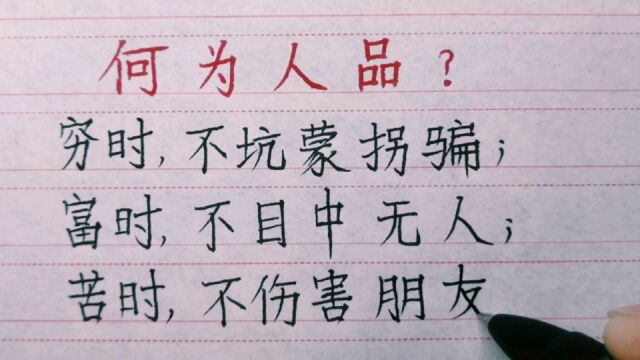 何为人品？
穷时，不坑蒙拐骗；
富时，不目中无人；
苦时，不伤害朋友